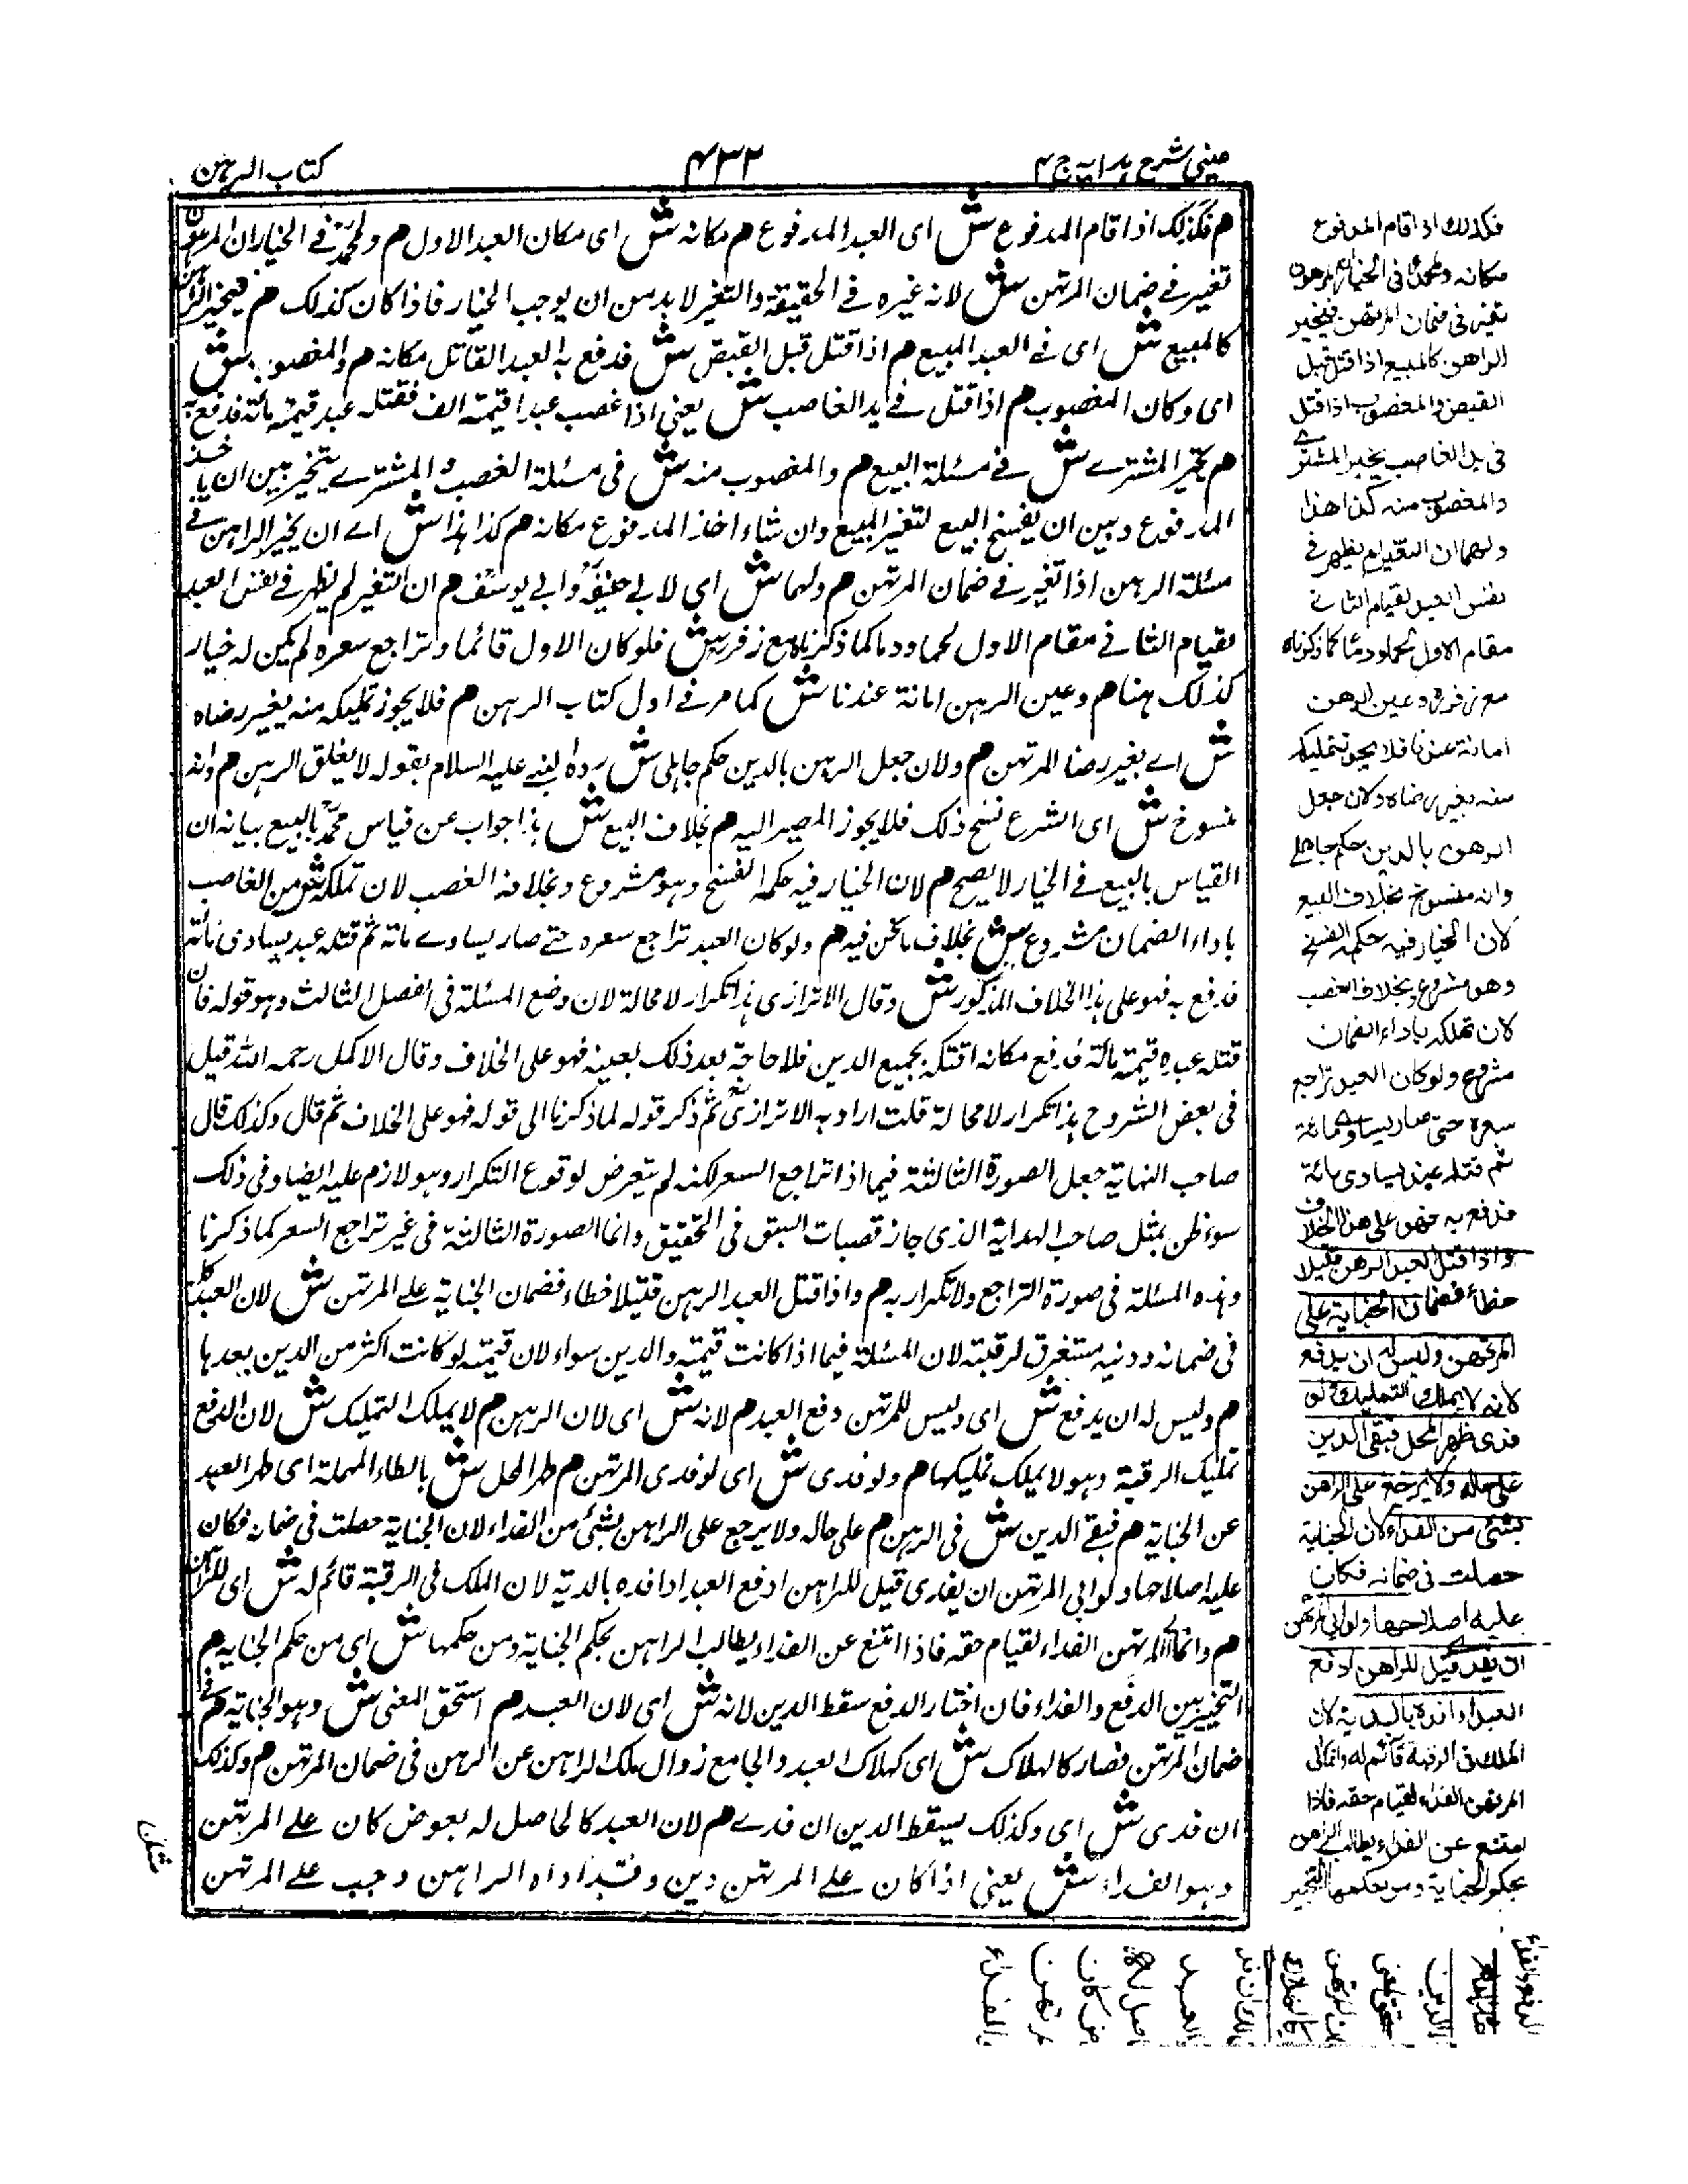 عینی شرح ہدایہ ج ۴
۴۳۲
کتاب الرہن
م فکذلک اذا قام المدفوع ش ای العبد المدفوع م مکانہ ش ای مکان العبد الاول م ولمحمد فے الخیار ان المرہون
تغیر فے ضمان المرتہن ش لانہ غیرہ فے الحقیقۃ والتغیر لا بد من ان یوجب الخیار فاذا کان کذلک م فیخیر الراہن
کالمبیع ش ای فے العبد المبیع م اذا قتل قبل القبض ش فدفع بہ العبد القاتل مکانہ م والمغصوب ش
ای وکان المغصوب م اذا قتل فے ید الغاصب ش یعنی اذا غصب عبدا قیمتہ الف فقتلہ عبد قیمتہ مائۃ فدفع بہ
م یخیر المشترے ش فے مسئلۃ البیع م والمغصوب منہ ش فی مسئلۃ الغصب والمشترے یتخیر بین ان یاخذ
المدفوع وبین ان یفسخ البیع لتغیر المبیع وان شاء اخذ المدفوع مکانہ م کذا ہذا ش اے ان یخیر الراہن فے
مسئلۃ الرہن اذا تغیر فے ضمان المرتہن م ولہما ش ای لابی حنیفۃ وابی یوسف م ان التغیر لم یظہر فے نفس العبد
بقیام الثانے مقام الاول لحما ودما کما ذکرناہ مع زفر ش فلو کان الاول قائما وتراجع سعرہ لم یکن لہ خیار
کذلک ہنا م وعین الرہن امانۃ عندنا ش کما مر فے اول کتاب الرہن م فلا یجوز تملیکہ منہ بغیر رضاہ
ش اے بغیر رضا المرتہن م ولان جعل الرہن بالدین حکم جاہلی ش ردہ النبے علیہ السلام بقولہ لا یغلق الرہن م وانہ
منسوخ ش ای الشرع نسخ ذلک فلا یجوز المصیر الیہ م بخلاف البیع ش ہذا جواب عن قیاس محمد بالبیع بیانہ ان
القیاس بالبیع فے الخیار لا یصح م لان الخیار فیہ حکمہ الفسخ وہو مشروع وبخلاف الغصب لان تملکہ ش من الغاصب
باداء الضمان مشروع ش بخلاف ما نحن فیہ م ولو کان العبد تراجع سعرہ حتے صار یساوے مائۃ ثم قتلہ عبد یساوی مائۃ
فدفع بہ فہو علی ہذا الخلاف المذکور ش وقال الاترازی ہذا تکرار لا محالۃ لان وضع المسئلۃ فی الفصل الثالث وہو قولہ فان
قتلہ عبد قیمتہ مائۃ فدفع مکانہ افتکہ بجمیع الدین فلا حاجۃ بعد ذلک بعینہ فہو علی الخلاف وقال الاکمل رحمہ اللہ قیل
فی بعض الشروح ہذا تکرار لا محالۃ قلت اراد بہ الاترازی ثم ذکر قولہ لما ذکرنا الی قولہ فہو علی الخلاف ثم قال وکذلک قال
صاحب النہایۃ جعل الصورۃ الثالثۃ فیما اذا تراجع السعر لکنہ لم یتعرض لوقوع التکرار وہو لازم علیہ ایضا وفی ذلک
سوء ظن بمثل صاحب الہدایۃ الذی حاز قصبات السبق فی التحقیق وانما الصورۃ الثالثۃ فی غیر تراجع السعر کما ذکرنا
وہذہ المسئلۃ فی صورۃ التراجع ولا تکرار بہ م واذا قتل العبد الرہن قتیلا خطاء فضمان الجنایۃ علے المرتہن ش لان العبد کلہ
فی ضمانہ ودینہ مستغرق لرقبتہ لان المسئلۃ فیما اذا کانت قیمتہ والدین سواء لان قیمتہ لو کانت اکثر من الدین بعدہا
م ولیس لہ ان یدفع ش ای ولیس للمرتہن دفع العبد م لانہ ش ای لان الرہن م لا یملک التملیک ش لان الدفع
تملیک الرقبۃ وہو لا یملک تملیکہا م ولو فدی ش ای لو فدی المرتہن م طہر المحل ش بالطاء المہملۃ ای طہر العبد
عن الجنایۃ م فبقے الدین ش فی الرہن م علی حالہ ولا یرجع علی الراہن بشئ من الفداء لان الجنایۃ حصلت فی ضمانہ فکان
علیہ اصلاحہا ولو ابی المرتہن ان یفدی قیل للراہن ادفع العبد او افدہ بالدیۃ لان الملک فی الرقبۃ قائم لہ ش ای للراہن
م وانما الی المرتہن الفداء لقیام حقہ فاذا امتنع عن الفداء یطالب الراہن بحکم الجنایۃ ومن حکمہا ش ای من حکم الجنایۃ م
التخییر بین الدفع والفداء فان اختار الدفع سقط الدین لانہ ش ای لان العبد م استحق لمعنی ش وہو الجنایۃ م فے
ضمان المرتہن فصار کالہلاک ش ای کہلاک العبد والجامع زوال ملک الراہن عن الرہن فی ضمان المرتہن م وکذلک
ان فدی ش ای وکذلک یسقط الدین ان فدے م لان العبد کالحاصل لہ بعوض کان علے المرتہن
وہو الفداء ش یعنی اذا کان علے المرتہن دین وقد اداہ الراہن وجب علے المرتہن
فکذلک اذا قام المدفوع
مکانہ ولمحمد فی الخیار ان المرہون
تغیر فی ضمان المرتہن فیخیر
الراہن کالمبیع اذا قتل قبل
القبض والمغصوب اذا قتل
فی ید الغاصب یخیر المشترے
والمغصوب منہ کذا ہذا
ولہما ان التغیر لم یظہر فی
نفس العبد لقیام الثانے
مقام الاول لحما ودما کما ذکرناہ
مع زفر وعین الرہن
امانۃ عندنا فلا یجوز تملیکہ
منہ بغیر رضاہ ولان جعل
الرہن بالدین حکم جاہلے
وانہ منسوخ بخلاف البیع
لان الخیار فیہ حکمہ الفسخ
وہو مشروع وبخلاف الغصب
لان تملکہ باداء الضمان
مشروع ولو کان العبد تراجع
سعرہ حتی صار یساوی مائۃ
ثم قتلہ عبد یساوی مائۃ
فدفع بہ فہو علی ہذا الخلاف
واذا قتل العبد الرہن قتیلا
خطأ فضمان الجنایۃ علی
المرتہن ولیس لہ ان یدفع
لانہ لا یملک التملیک ولو
فدی طہر المحل فبقی الدین
علی حالہ ولا یرجع علی الراہن
بشئ من الفداء لان الجنایۃ
حصلت فی ضمانہ فکان
علیہ اصلاحہا ولو ابی المرتہن
ان یفدی قیل للراہن ادفع
العبد او افدہ بالدیۃ لان
الملک فی الرقبۃ قائم لہ وانما الی
المرتہن الفداء لقیام حقہ فاذا
امتنع عن الفداء یطالب الراہن
بحکم الجنایۃ ومن حکمہا التخییر
الدفع والفداء